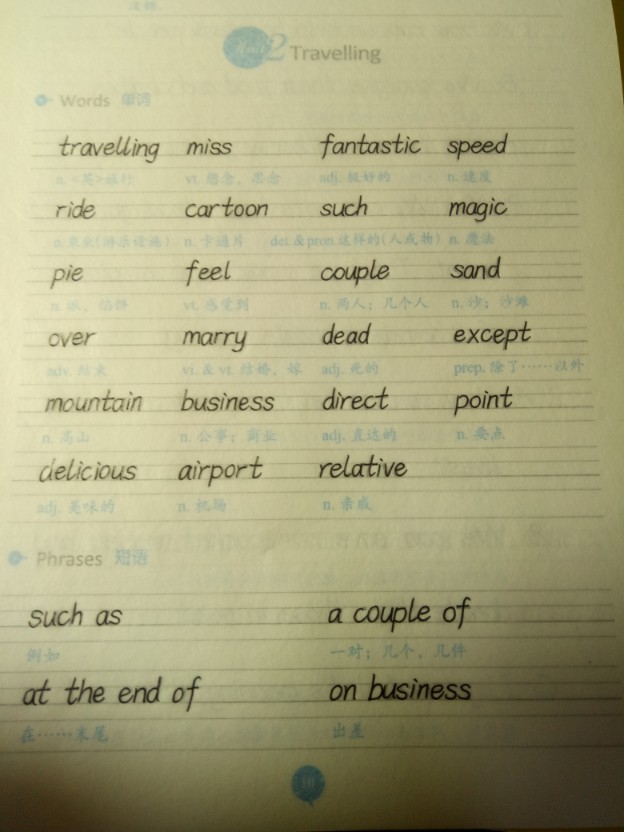 Unit 2 Travelling
Words 单词
travelling miss fantastic speed
n. <英>旅行 vt. 想念，思念 adj. 极好的 n. 速度
ride cartoon such magic
n. 乘坐(游乐设施) n. 卡通片 det. & pron.这样的(人或物) n. 魔法
pie feel couple sand
n. 派，馅饼 vt. 感觉到 n. 两人；几个人 n. 沙；沙滩
over marry dead except
adv. 结束 vi. & vt. 结婚，嫁 adj. 死的 prep. 除了……以外
mountain business direct point
n. 高山 n. 公事；商业 adj. 直达的 n. 要点
delicious airport relative
adj. 美味的 n. 机场 n. 亲戚
Phrases 短语
such as a couple of
例如 一对；几个，几件
at the end of on business
在……末尾 出差